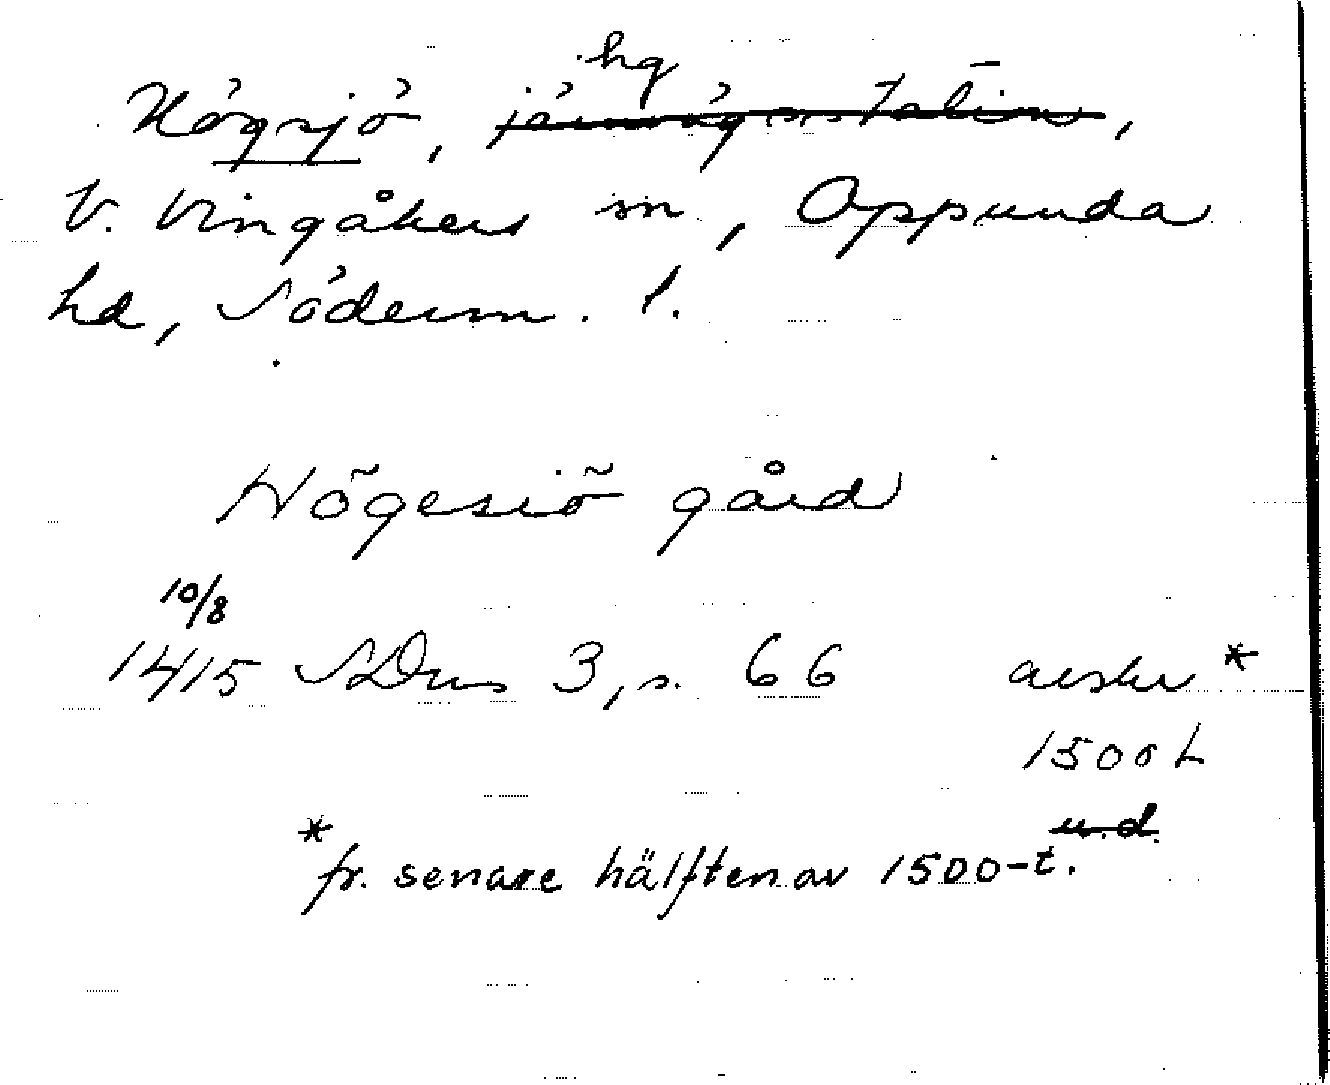 hg
Högsjö, järnvägsstation,
V. Vingåkers sn, Oppunda
hd, Söderm. l.
Högesiö gård
10/8
1415 SDns 3, s. 66 avskr *
1500 h
u.d.
* fr. senare hälften av 1500-t.